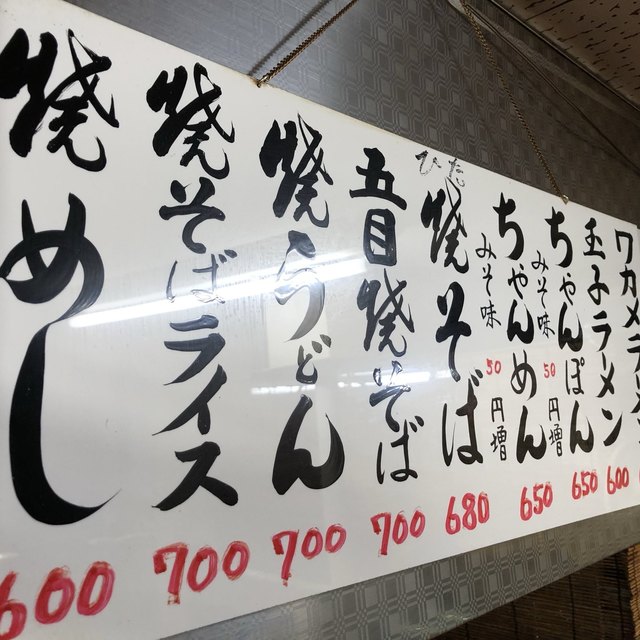 ワカメラ
玉子ラーメン
600
ちゃんぽん
650
みそ味 50円増
ちゃんめん
650
みそ味 50円増
焼そば
680
五目焼そば
700
焼うどん
700
焼そばライス
700
焼めし
600